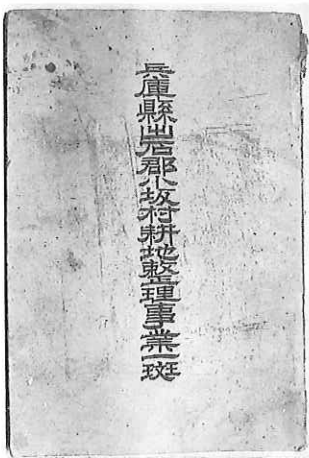 兵庫縣出石郡小坂村耕地整理事業一斑